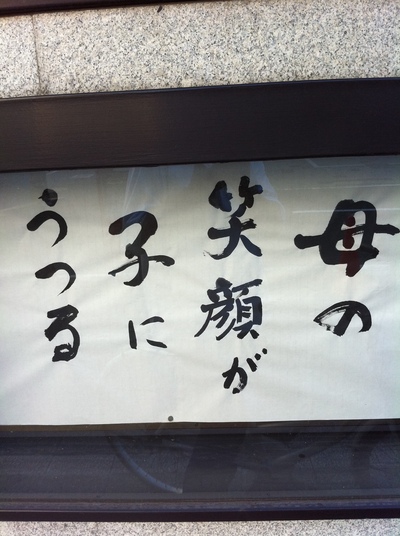 母の
笑顔が
子に
うつる